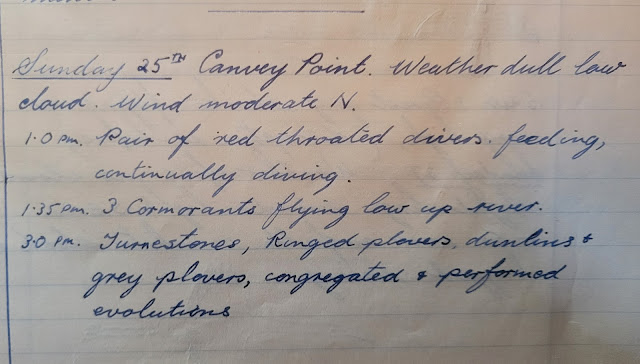 Sunday 25TH Canvey Point. Weather dull low
cloud. Wind moderate N.
1.0 pm. Pair of red throated divers. feeding,
continually diving.
1.35 pm. 3 Cormorants flying low up river.
3.0 pm. Turnestones, Ringed plovers, dunlins &
grey plovers, congregated & performed
evolutions